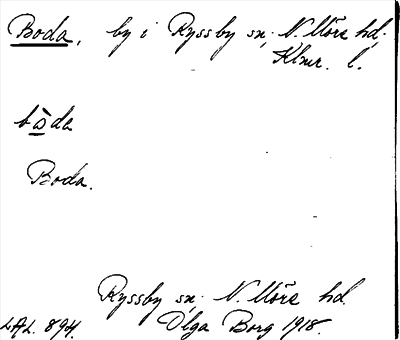 Boda, by i Ryssby sn, N. Möre hd,
Klmr. l.
båda
Boda.
Ryssby sn. N. Möre hd.
LAL. 894. Olga Borg 1918.